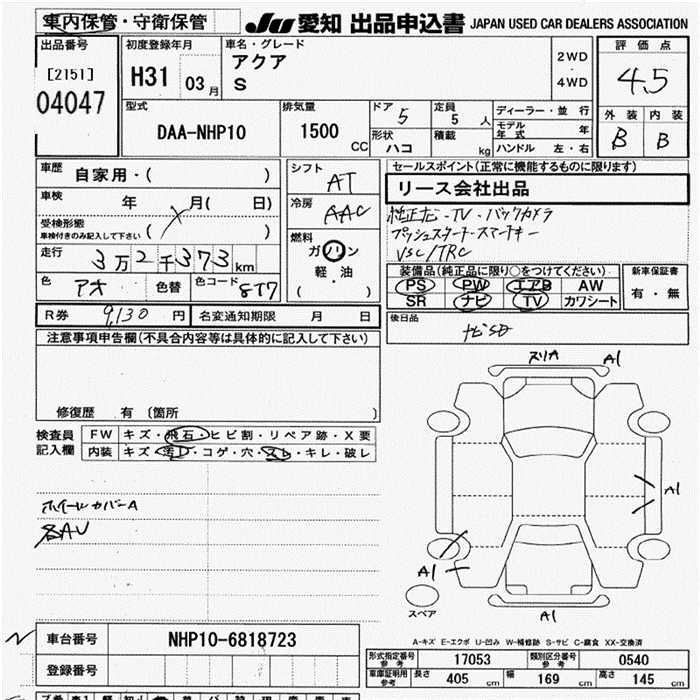 車内保管・守衛保管
JU 愛知 出品申込書 JAPAN USED CAR DEALERS ASSOCIATION
出品番号
[2151]
04047
初度登録年月
H31 03月
車名・グレード
アクア
S
2WD
・
4WD
評価点
4.5
外装 内装
B B
型式
DAA-NHP10
排気量
1500 CC
ドア 5
定員 5 人
形状 ハコ
積載 kg
ディーラー・並行
モデル年式 年
ハンドル 左・右
車歴 自家用・( )
車検 年 月( 日)
受検形態
車検付きのみ記入して下さい ( )
走行 3万2千373km
色 アオ 色替 色コード 8T7
シフト AT
冷房 AAC
燃料
ガソリン
軽・油
( )
セールスポイント(正常に機能するものに限ります)
リース会社出品
純正ナビ・TV・バックカメラ
プッシュスタータースマートキー
VSC/TRC
装備品(純正品に限り○をつけてください)
PS PW エアB AW
SR ナビ TV カワシート
新車保証書
有・無
R券 9,130 円 名変通知期限 月 日
後日品
ナビSD
注意事項申告欄(不具合内容等は具体的に記入して下さい)
修復歴 有 〔箇所 〕
検査員記入欄
FW キズ・飛石・ヒビ割・リペア跡・X要
内装 キズ・汚レ・コゲ・穴・スレ・キレ・破レ
ホイールカバーA
各AU
ヌリA A1
A1
A1
A1
スペア
A-キズ E-エクボ U-凹み W-補修跡 S-サビ C-腐食 XX-交換済
車台番号 NHP10-6818723
登録番号
形式指定番号 参考 17053 類別区分番号 参考 0540
車庫証明用 参考 長さ 405 cm 幅 169 cm 高さ 145 cm